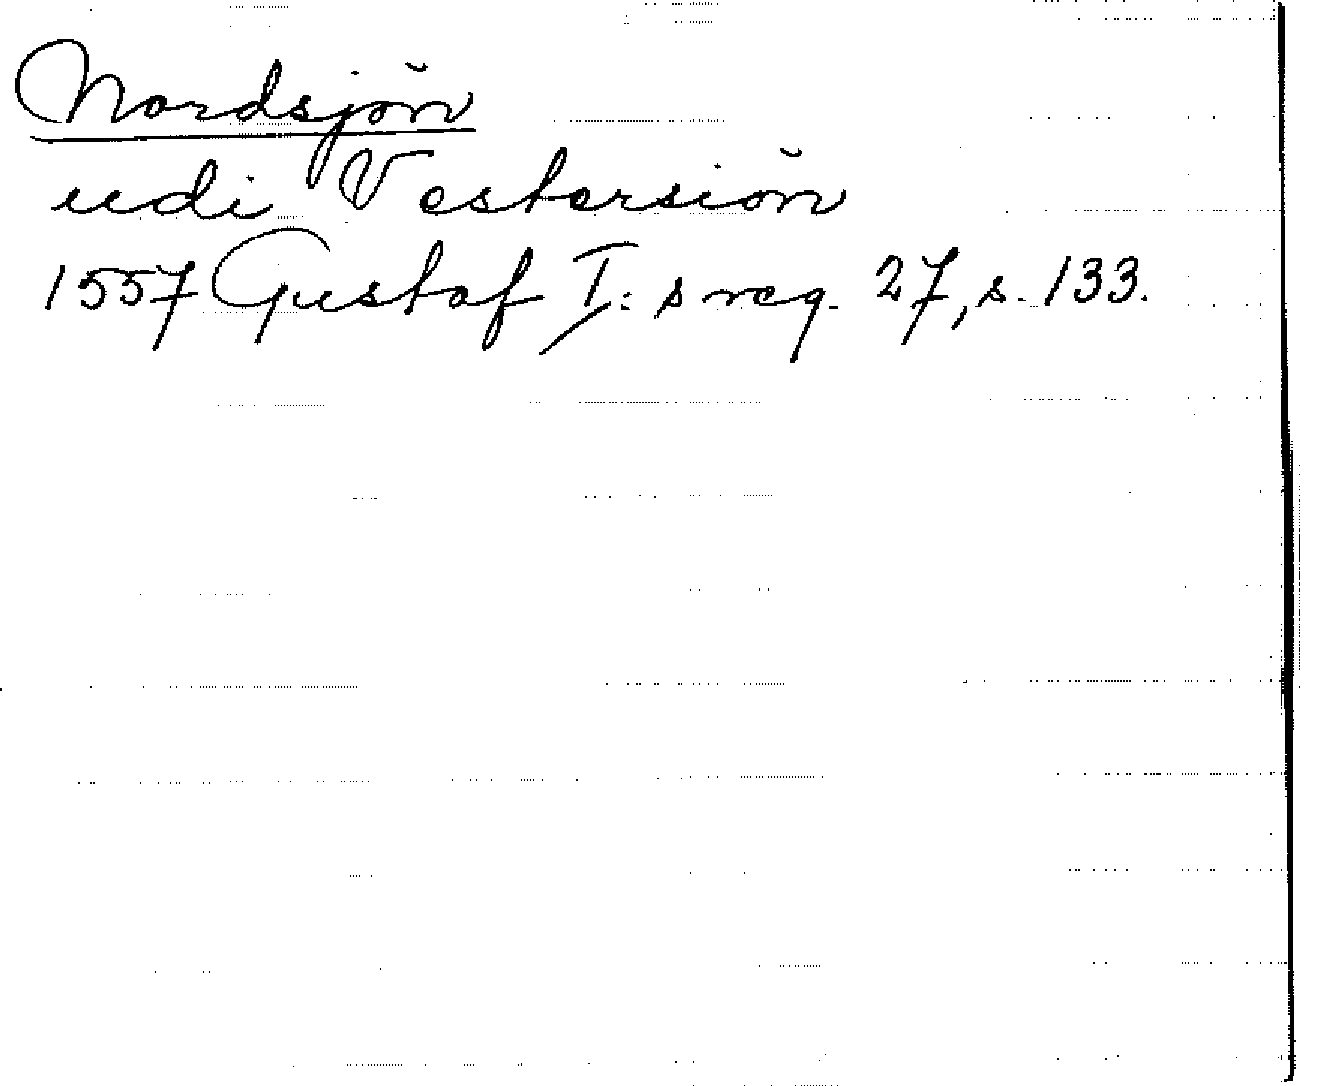 Nordsjön
udi Vestersiön
1557 Gustaf I:s reg. 27, s. 133.